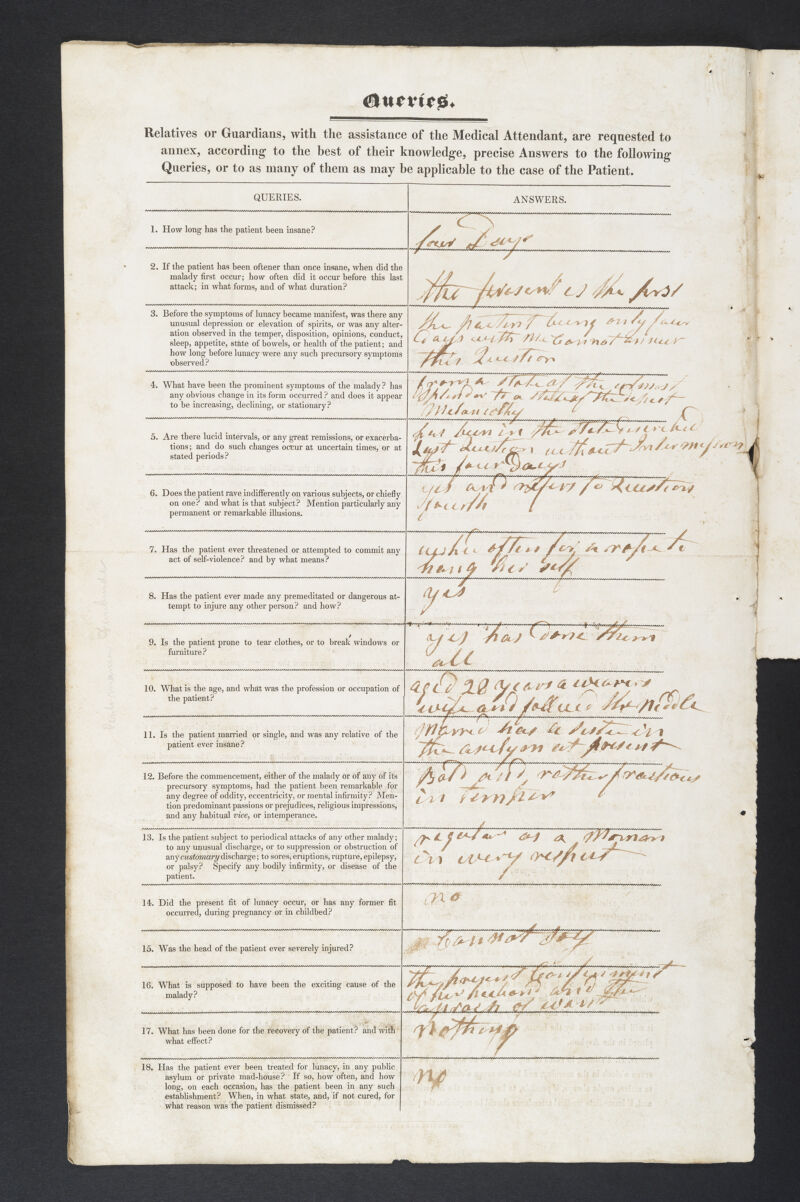 Queries.
Relatives or Guardians, with the assistance of the Medical Attendant, are requested to
annex, according to the best of their knowledge, precise Answers to the following
Queries, or to as many of them as may be applicable to the case of the Patient.
QUERIES.
ANSWERS.
1. How long has the patient been insane?
four Days
2. If the patient has been oftener than once insane, when did the
malady first occur; how often did it occur before this last
attack; in what forms, and of what duration?
the present is the first
3. Before the symptoms of lunacy became manifest, was there any
unusual depression or elevation of spirits, or was any alter-
ation observed in the temper, disposition, opinions, conduct,
sleep, appetite, state of bowels, or health of the patient; and
how long before lunacy were any such precursory symptoms
observed?
the patient being only four
days with me Cannot answer
this Question
4. What have been the prominent symptoms of the malady? has
any obvious change in its form occurred? and does it appear
to be increasing, declining, or stationary?
from a state of the utmost
Splendor to a state of the depest
Melancolhy
5. Are there lucid intervals, or any great remissions, or exacerba-
tions; and do such changes occur at uncertain times, or at
stated periods?
has been in the state described
Last Question without Intermission
this four Days
6. Does the patient rave indifferently on various subjects, or chiefly
on one? and what is that subject? Mention particularly any
permanent or remarkable illusions.
yes and refers to Question
fourth
7. Has the patient ever threatened or attempted to commit any
act of self-violence? and by what means?
often for a rope to
hang her self
8. Has the patient ever made any premeditated or dangerous at-
tempt to injure any other person? and how?
yes
9. Is the patient prone to tear clothes, or to break windows or
furniture?
yes has done them
all
10. What is the age, and what was the profession or occupation of
the patient?
aged 28 years a weavers
wife and follwed the Niddle
11. Is the patient married or single, and was any relative of the
patient ever insane?
Married has a sister in
the aselym at present
12. Before the commencement, either of the malady or of any of its
precursory symptoms, had the patient been remarkable for
any degree of oddity, eccentricity, or mental infirmity? Men-
tion predominant passions or prejudices, religious impressions,
and any habitual vice, or intemperance.
Bold and rather fractious
in temper
13. Is the patient subject to periodical attacks of any other malady;
to any unusual discharge, or to suppression or obstruction of
any customary discharge; to sores, eruptions, rupture, epilepsy,
or palsy? Specify any bodily infirmity, or disease of the
patient.
regular as a Woman
in every respect
14. Did the present fit of lunacy occur, or has any former fit
occurred, during pregnancy or in childbed?
no
15. Was the head of the patient ever severely injured?
Cannot say
16. What is supposed to have been the exciting cause of the
malady?
the present Confinement
of her husband and the
aproach of want
17. What has been done for the recovery of the patient? and with
what effect?
Nothing
18. Has the patient ever been treated for lunacy, in any public
asylum or private mad-house? If so, how often, and how
long, on each occasion, has the patient been in any such
establishment? When, in what state, and, if not cured, for
what reason was the patient dismissed?
no